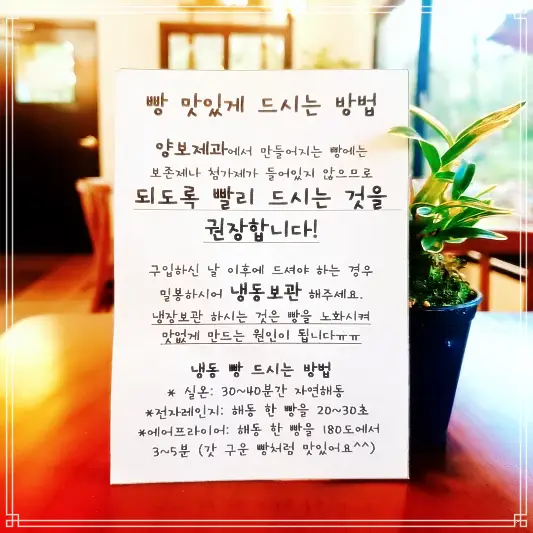 빵 맛있게 드시는 방법
양보제과에서 만들어지는 빵에는
보존제나 첨가제가 들어있지 않으므로
되도록 빨리 드시는 것을
권장합니다!
구입하신 날 이후에 드셔야 하는 경우
밀봉하시어 냉동보관 해주세요.
냉장보관 하시는 것은 빵을 노화시켜
맛없게 만드는 원인이 됩니다ㅠㅠ
냉동 빵 드시는 방법
* 실온: 30~40분간 자연해동
*전자레인지: 해동 한 빵을 20~30초
*에어프라이어: 해동 한 빵을 180도에서
3~5분 (갓 구운 빵처럼 맛있어요^^)